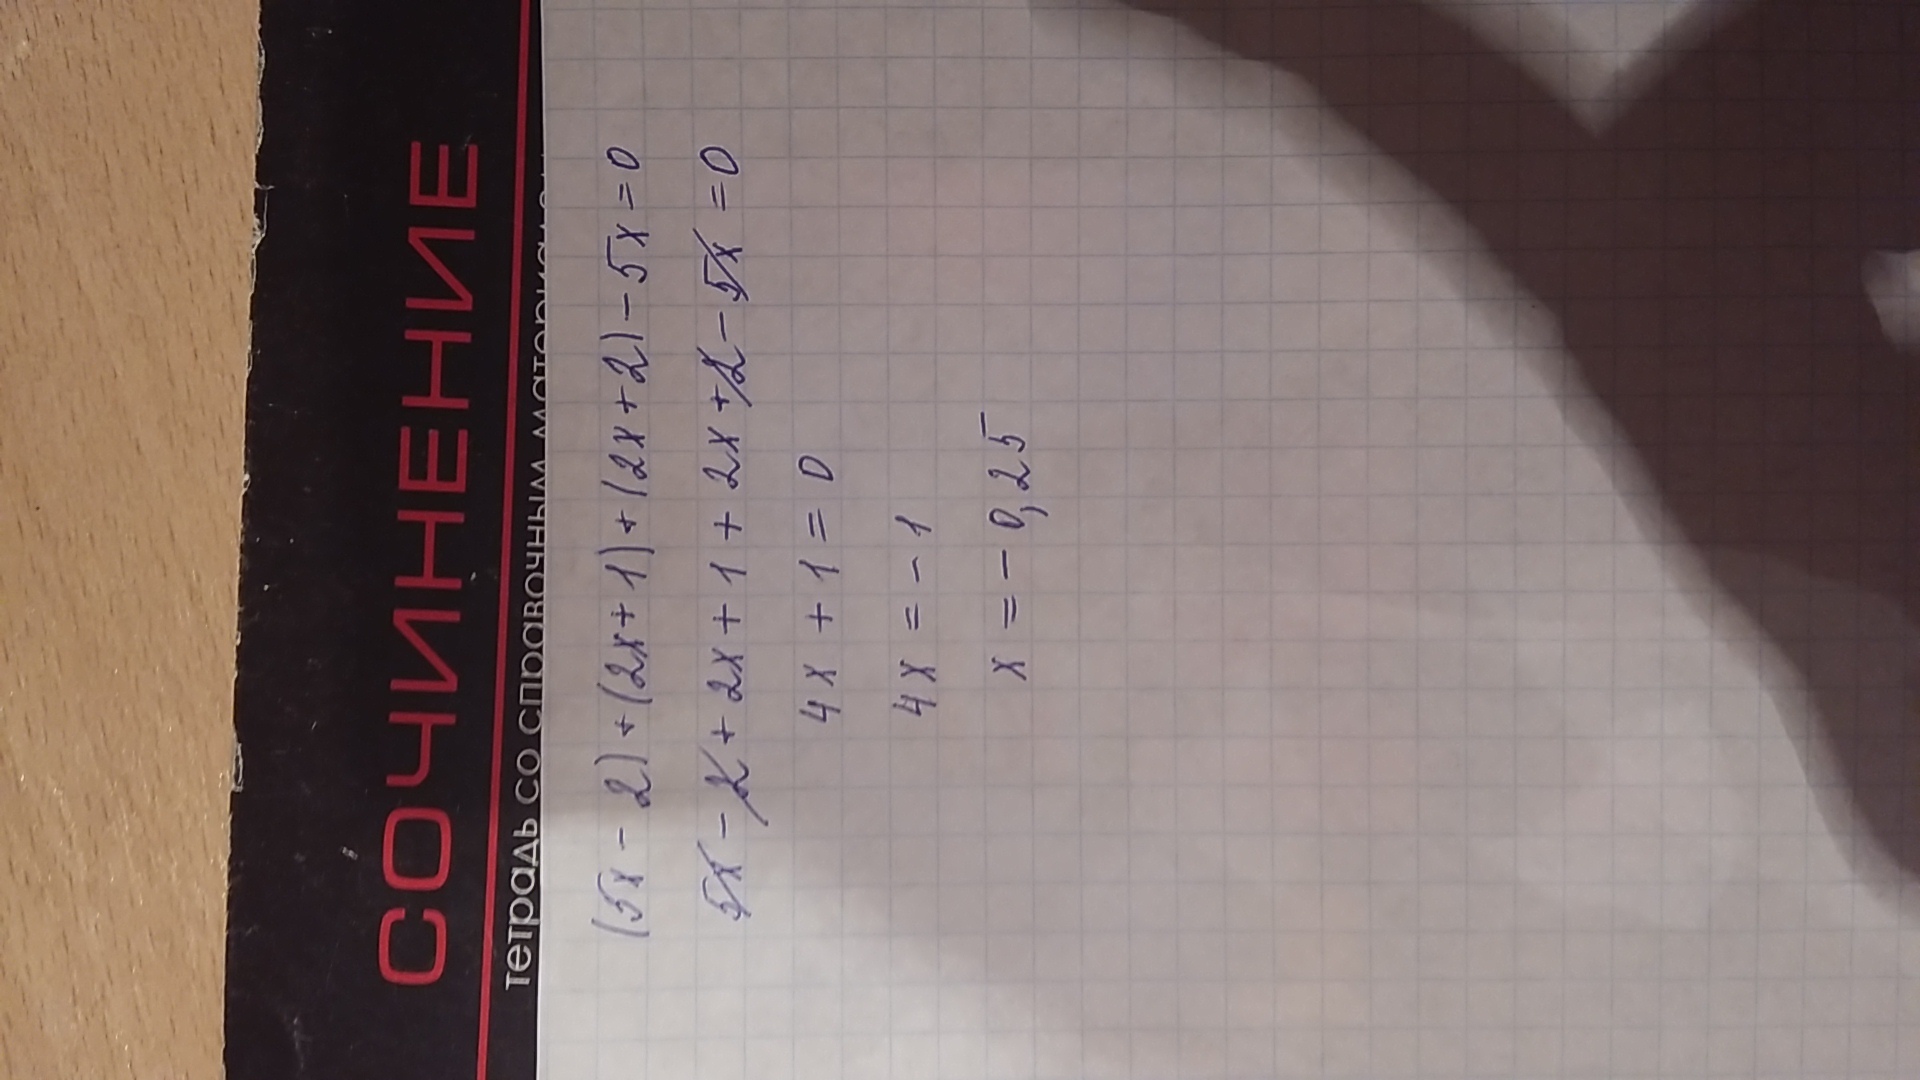 СОЧИНЕНИЕ
тетрадь со справочным материалом
(5x - 2) + (2x + 1) + (2x + 2) - 5x = 0
5x - 2 + 2x + 1 + 2x + 2 - 5x = 0
4x + 1 = 0
4x = - 1
x = - 0,25